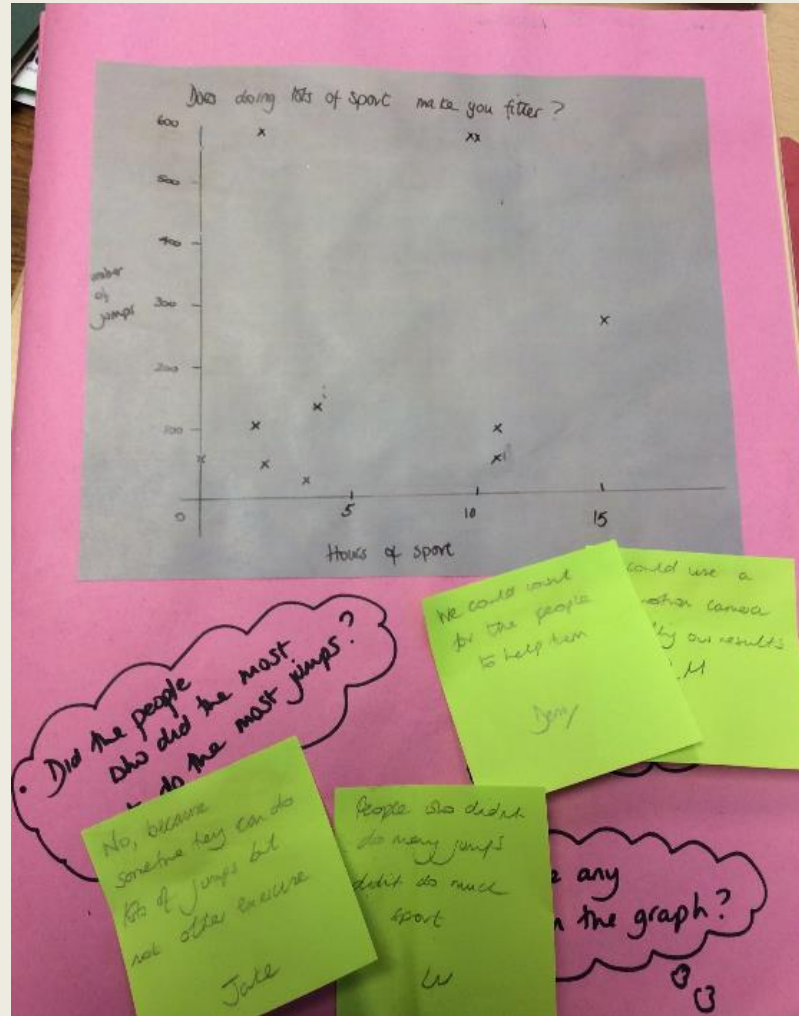 Does doing lots of sport make you fitter?
600
500
400
300
200
100
0
number
of
jumps
5
10
15
Hours of sport
Did the people
who did the most
do the most jumps?
We could count
for the people
to help them
could use a
motion camera
our results
No, because
sometime they can do
lots of jumps but
not other exercise
Jake
People who didn't
do many jumps
didn't do much
sport
any
the graph?